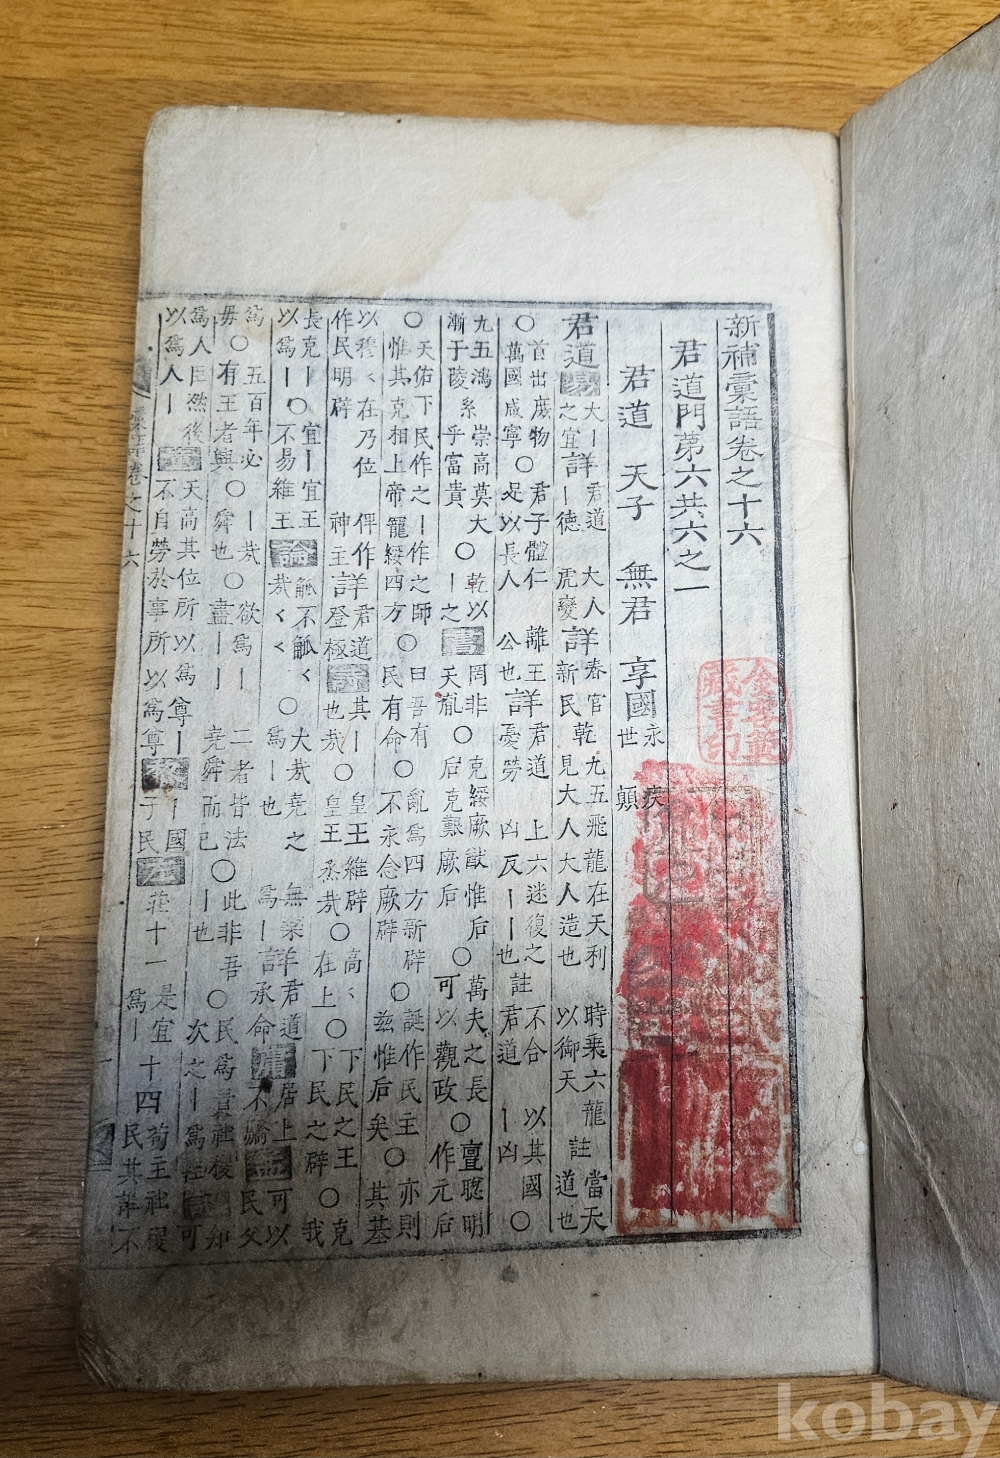 新補彙語卷之十六
君道門第六共六之一
君道 天子 無君 享國永世 疾顚
君道易大丨君道之宜詳丨德 大人虎變詳春官新民 乾九五飛龍在天利見大人大人造也 時乘六龍以御天註當天道也
○首出庶物萬國咸寧○君子體仁是以長人 離王公也詳君道憂勞 上六迷復之凶反丨丨也註不合君道丨凶 以其國○
九五鴻漸于陵 系崇高莫大乎富貴○乾以丨之書罔非天胤○克綏厥猷惟后后克艱厥后○萬夫之長可以觀政○亶聰明作元后
○天佑下民作之丨作之師惟其克相上帝寵綏四方○曰吾有民有命○亂爲四方新辟不永念厥辟○誕作民主玆惟后矣○亦則其基
以穆丶在乃位作民明辟 俾作神主詳君道登極詩其丨也㢤○皇王維辟皇王烝㢤○高丶在上○下民之王下民之辟○克
長克丨○宜丨宜王以爲丨不易維王論觚不觚㢤 大㢤堯之爲丨也 無樂爲丨詳君道承命庸居上不驕孟可以民父
爲 五百年必毋○有王者興○丨㢤舜也○欲爲丨盡丨丨二者皆法堯舜而已○此非吾丨也○民爲貴社稷次之丨爲輕
爲人臣然後以爲人丨 天高其位所以爲尊不自勞於事所以爲尊丨國于民左莊十一是宜爲丨十四苟主社稷民其誰不
彙語卷之十六
藏書印
kobay